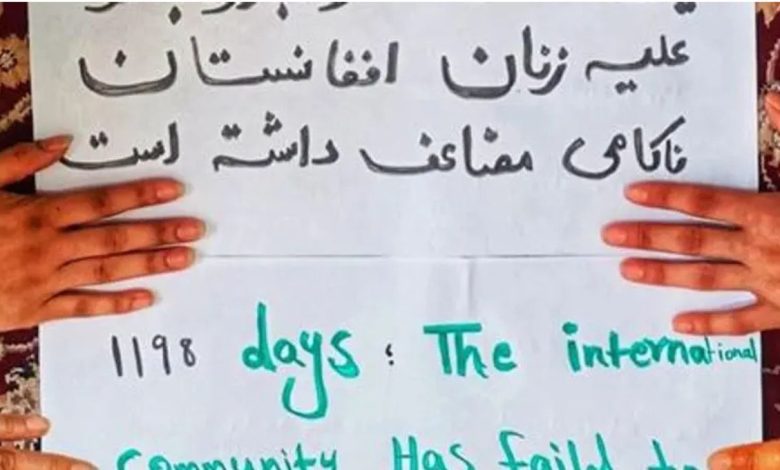 علیه زنان افغانستان
ناکامی مضاعف داشته است
1198 days : The international
community Has faild to